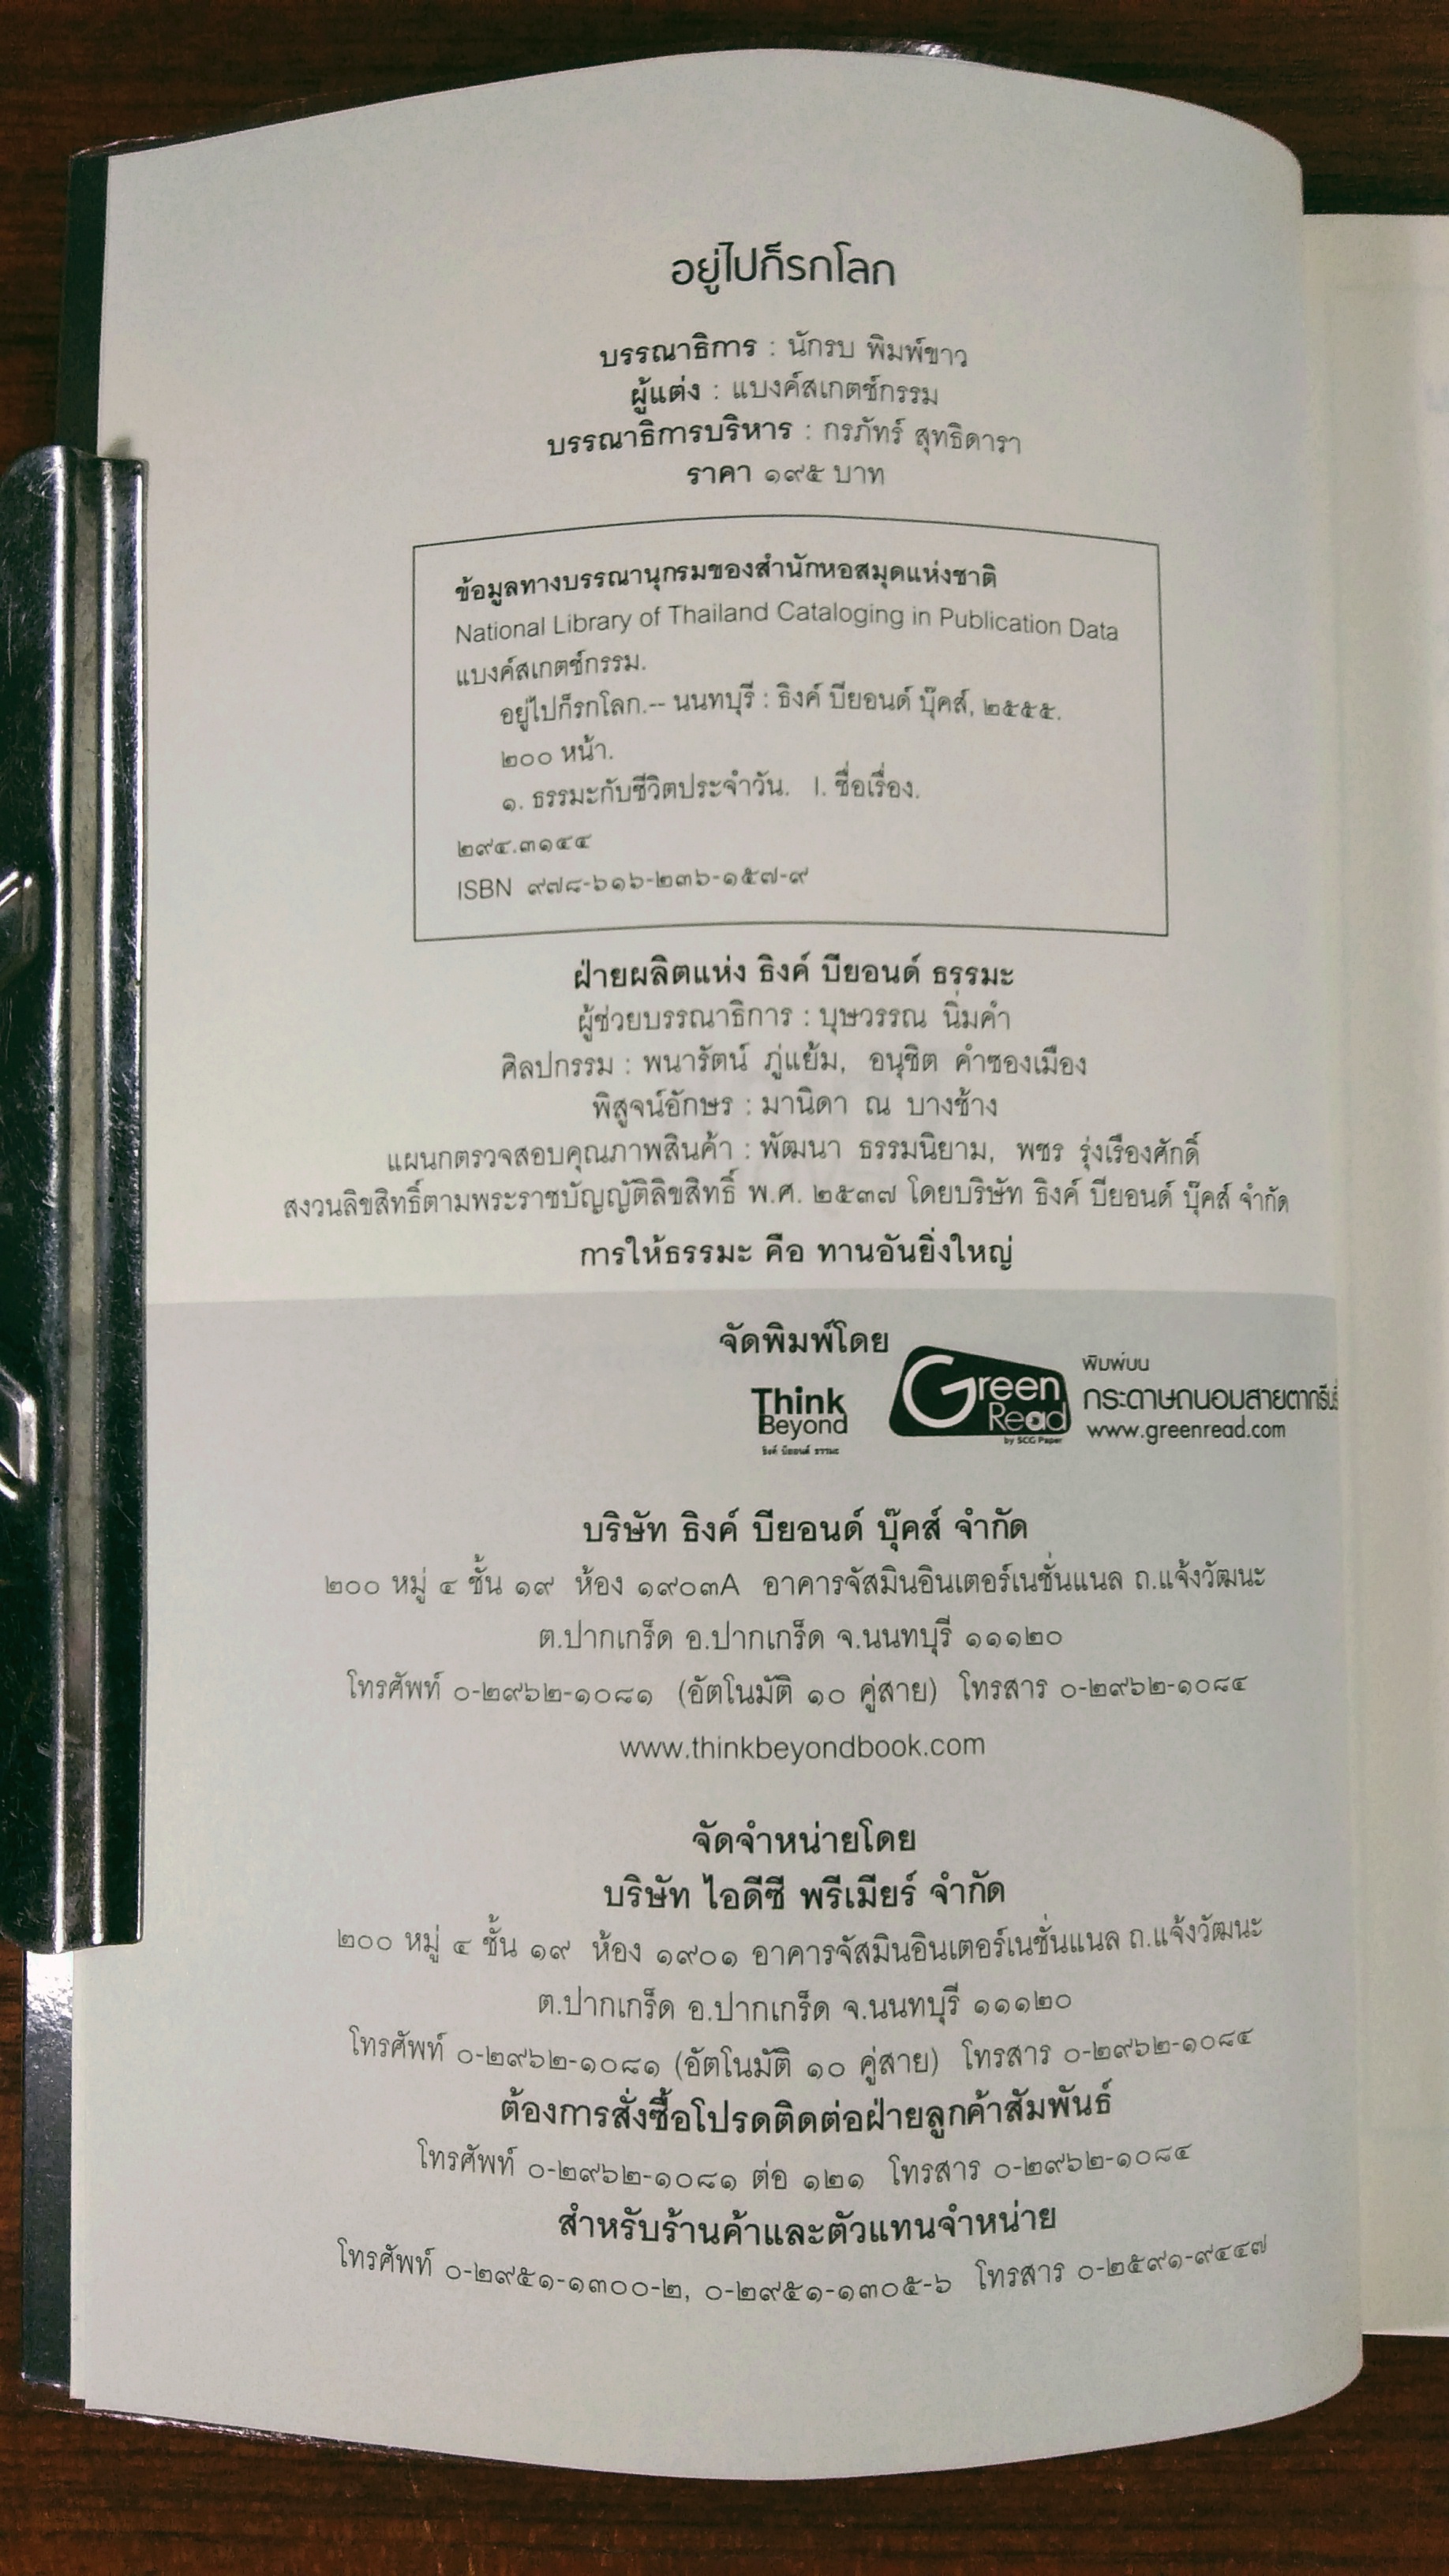 อยู่ไปก็รกโลก
บรรณาธิการ : นักรบ พิมพ์ขาว
ผู้แต่ง : แบงค์สเกตช์กรรม
บรรณาธิการบริหาร : กรภัทร์ สุทธิดารา
ราคา ๑๙๕ บาท
ข้อมูลทางบรรณานุกรมของสำนักหอสมุดแห่งชาติ
National Library of Thailand Cataloging in Publication Data
แบงค์สเกตช์กรรม.
อยู่ไปก็รกโลก.-- นนทบุรี : ธิงค์ บียอนด์ บุ๊คส์, ๒๕๕๕.
๒๐๐ หน้า.
๑. ธรรมะกับชีวิตประจำวัน. I. ชื่อเรื่อง.
๒๙๔.๓๑๔๔
ISBN ๙๗๘-๖๑๖-๒๓๖-๑๕๗-๙
ฝ่ายผลิตแห่ง ธิงค์ บียอนด์ ธรรมะ
ผู้ช่วยบรรณาธิการ : บุษวรรณ นิ่มคำ
ศิลปกรรม : พนารัตน์ ภู่แย้ม, อนุชิต คำซองเมือง
พิสูจน์อักษร : มานิดา ณ บางช้าง
แผนกตรวจสอบคุณภาพสินค้า : พัฒนา ธรรมนิยาม, พชร รุ่งเรืองศักดิ์
สงวนลิขสิทธิ์ตามพระราชบัญญัติลิขสิทธิ์ พ.ศ. ๒๕๓๗ โดยบริษัท ธิงค์ บียอนด์ บุ๊คส์ จำกัด
การให้ธรรมะ คือ ทานอันยิ่งใหญ่
จัดพิมพ์โดย
Think
Beyond
ธิงค์ บียอนด์ ธรรมะ
Green
Read
by SCG Paper
พิมพ์บน
กระดาษถนอมสายตากรีน
www.greenread.com
บริษัท ธิงค์ บียอนด์ บุ๊คส์ จำกัด
๒๐๐ หมู่ ๔ ชั้น ๑๙ ห้อง ๑๙๐๓A อาคารจัสมินอินเตอร์เนชั่นแนล ถ.แจ้งวัฒนะ
ต.ปากเกร็ด อ.ปากเกร็ด จ.นนทบุรี ๑๑๑๒๐
โทรศัพท์ ๐-๒๙๖๒-๑๐๘๑ (อัตโนมัติ ๑๐ คู่สาย) โทรสาร ๐-๒๙๖๒-๑๐๘๔
www.thinkbeyondbook.com
จัดจำหน่ายโดย
บริษัท ไอดีซี พรีเมียร์ จำกัด
๒๐๐ หมู่ ๔ ชั้น ๑๙ ห้อง ๑๙๐๑ อาคารจัสมินอินเตอร์เนชั่นแนล ถ.แจ้งวัฒนะ
ต.ปากเกร็ด อ.ปากเกร็ด จ.นนทบุรี ๑๑๑๒๐
โทรศัพท์ ๐-๒๙๖๒-๑๐๘๑ (อัตโนมัติ ๑๐ คู่สาย) โทรสาร ๐-๒๙๖๒-๑๐๘๔
ต้องการสั่งซื้อโปรดติดต่อฝ่ายลูกค้าสัมพันธ์
โทรศัพท์ ๐-๒๙๖๒-๑๐๘๑ ต่อ ๑๒๑ โทรสาร ๐-๒๙๖๒-๑๐๘๔
สำหรับร้านค้าและตัวแทนจำหน่าย
โทรศัพท์ ๐-๒๙๕๑-๑๓๐๐-๒, ๐-๒๙๕๑-๑๓๐๕-๖ โทรสาร ๐-๒๕๙๑-๙๔๔๗